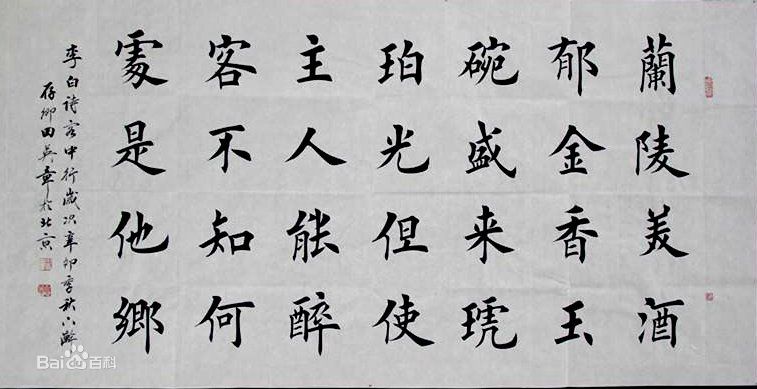 蘭陵美酒
郁金香玉
碗盛来琥
珀光但使
主人能醉
客不知何
處是他鄉
李白诗客中行歲次辛卯季秋
存卿田英章於北京
Bai百科